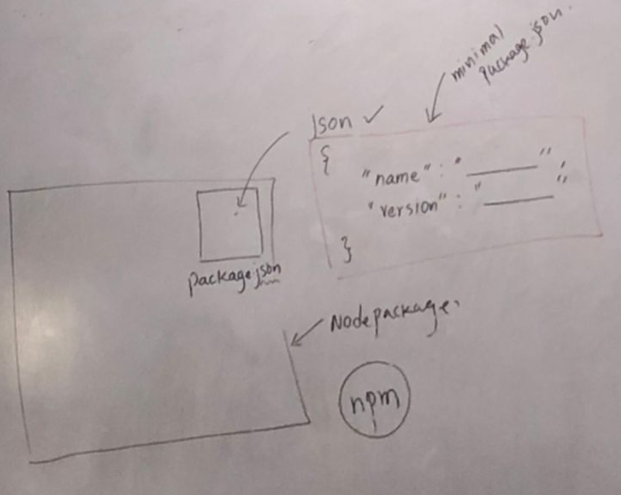 minimal
package.json.
json ✓
{
"name" : "______",
"version" : "______"
}
package.json
Node package.
npm